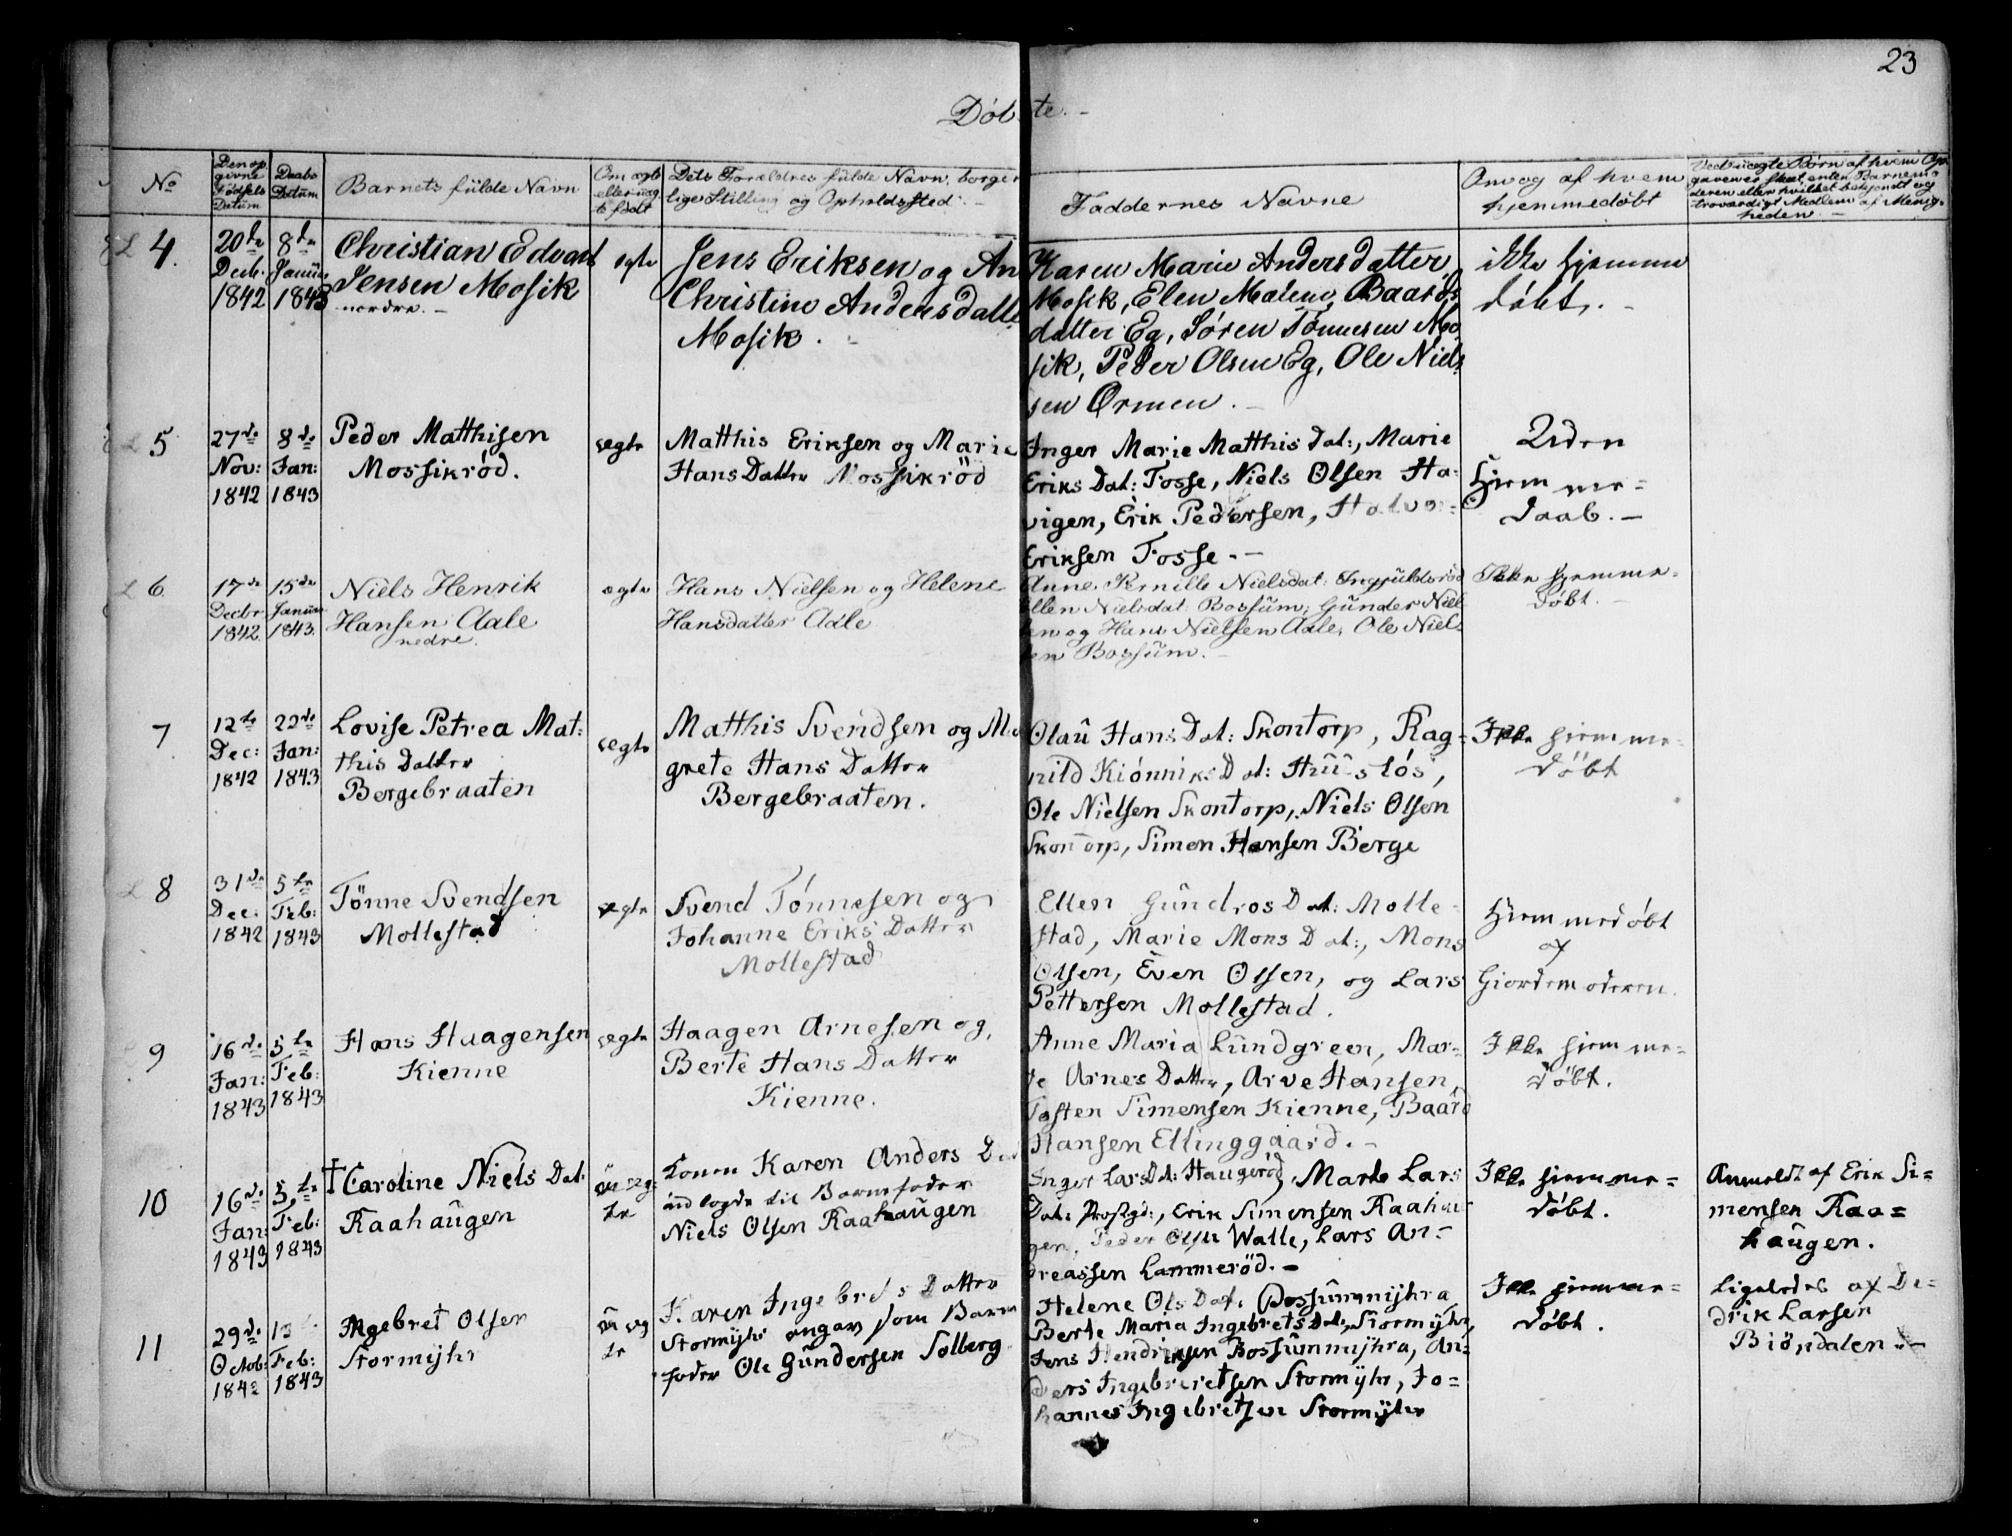 23
Døbte.
No
Den op
givne
Fødsels
Datum
Daabs
Datum
Barnets fulde Navn
Om ægte
eller uæg
te født
Dets Forældres fulde Navn, borger
lige Stilling og Opholdssted.
Faddernes Navne
Om og af hvem
hjemmedøbt
Ved uægte Børn af hvem Op
gaven er skeet, enten Barnemo
deren eller hvilket bekjendt og
troværdigt Medlem af Menig-
heden.
4.
20de
Decb.
1842
8de
Januar
1843
Christian Edvard
Jensen Mosik
nordre.
ægte
Jens Eriksen og An
Christine Andersdatte
Mosik.
Karen Marie Andersdatter
Mosik, Elen Malene Baards
datter Eg, Søren Tønnesen Mo
sik, Peder Olsen Eg, Ole Niel
sen Ørmen.
ikke hjemme
døbt.
5
27de
Nov:
1842
8de
Jan:
1843
Peder Matthisen
Mossikrød.
ægte
Matthis Eriksen og Marie
Hans Datter Mossikröd
Inger Marie Matthis Dat:, Marie
Eriks Dat: Fosse, Niels Olsen Ha-
vigen, Erik Pedersen, Halvor
Eriksen Fosse.
Uden
Hjemme=
daab.
6
17de
Decbr
1842
15de
Januar
1843.
Niels Henrik
Hansen Aale
nedre.
ægte
Hans Nielsen og Helene
Hansdatter Aale
Anne Pernille Nielsdat: Ingvildsrød
Ellen Nielsdat: Bossum, Gunder Niel
sen og Hans Nielsen Aale, Ole Niels
sen Bossum.
Ikke hjemme-
døbt.
7
12te
Dec:
1842
22de
Jan:
1843
Lovise Petrea Mat:
this Datter
Bergebraaten
ægte
Matthis Svendsen og Ma
grete Hans Datter
Bergebraaten.
Olau Hans Dat: Skontorp, Rag-
nild Kiónniks Dat: Huuslós,
Ole Nielsen Skontorp, Niels Olsen
Skontorp, Simen Hansen Berge
Ikke hjemme-
døbt
8
31de
Dec:
1842
5te
Feb:
1843
Tönne Svendsen
Mollestad
ægte
Svend Tönnesen og
Johanne Eriks Datter
Mollestad
Ellen Gundros Dat: Molle-
stad, Marie Mons Dat:, Mons
Olsen, Even Olsen, og Lars
Pettersen Mollestad.
Hjemmedøbt
af
Giordemoderen.
9
16de
Jan:
1843
5te
Feb:
1843
Hans Haagensen
Kienne
ægte
Haagen Arnesen og
Berte Hans Datter
Kienne.
Anne Maria Lundgreen, Mar-
te Arnes Datter, Arve Hansen,
Tosten Simensen Kienne, Baard
Hansen Ellinggaard.
Ikke hjemme-
døbt.
10
16de
Jan:
1843
5te
Feb:
1843
† Caroline Niels Dat:
Raahaugen
uæg-
te
Konen Karen Anders Dat
udlagde til Barnefader
Niels Olsen Raahaugen
Inger Lars Dat: Haugerød, Marte Lars
Dat: Prestgd:, Erik Simensen Raahau
gen, Peder Olsen Walle, Lars An-
dreassen Lammeröd.
Ikke hjemme-
døbt.
Anmeldt af Erik Si=
mensen Raa=
haugen.
11
29de
Octob:
1842
13
Feb:
1843
Ingebret Olsen
Stormyhr
uæg
te
Karen Ingebrets Datter
Stormyhr angav som Barne
fader Ole Gundersen Solberg
Helene Ols Dat: Bossummyhra
Berte Maria Ingebrets Dat:, Stormyhr,
Jens Hendriksen Bossummyhra, An=
ders Ingebretsen Stormyhr, Jo=
hannes Ingebretsen Stormyhr
Ikke hjemme-
døbt.
Ligeledes af De-
drik Larsen
Biöndalen.